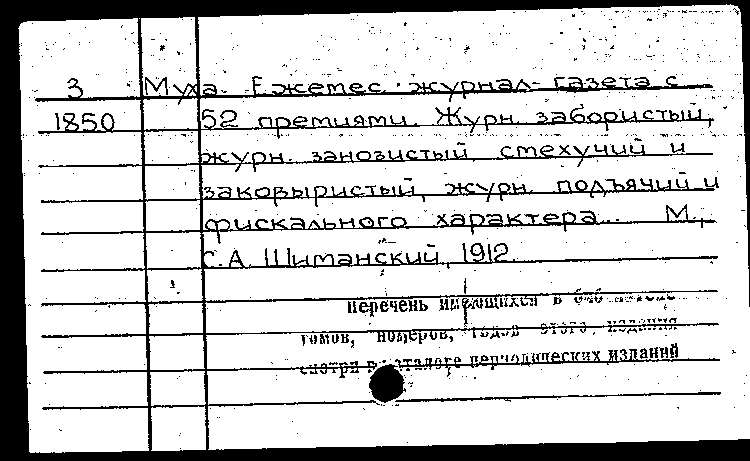 3 Муха. Ежемес. журнал-газета с
1850 52 премиями. Журн. забористый,
журн. занозистый, смехучий и
заковыристый, журн. подъячий и
фискального характера... М.,
С.А. Шиманский, 1912.
Перечень имеющихся в библиотеке
томов, номеров, годов этого издания
смотри в каталоге периодических изданий